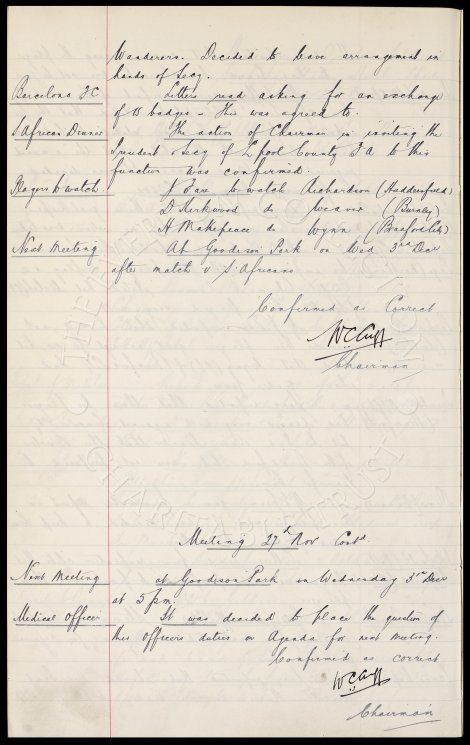 Wanderers. Decided to leave arrangement in
hands of Secy.
Barcelona FC Letters read asking for an exchange
of badges - This was agreed to.
S African Dinner The action of Chairman in inviting the
President & Secy of L'pool County FA to this
function was confirmed.
Players to watch J Fare to watch Richardson (Huddersfield)
D Kirkwood do Weaver (Burnley)
H Makepeace do Wynn (Bradford City)
Next Meeting At Goodison Park on Wed 3rd Decr
after match v S. Africans
Confirmed as Correct
WCCuff
Chairman
THE
CHARITABLE TRUST
Meeting 27th Nov Contd
Next Meeting at Goodison Park on Wednesday 3rd Decr
at 5 pm.
Medical Officer It was decided to place the question of
this officers duties on Agenda for next meeting.
Confirmed as correct
WCCuff
Chairman